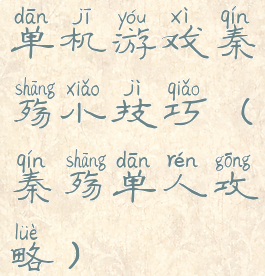 dān jī yóu xì qín
单机游戏秦
shāng xiǎo jì qiǎo
殇小技巧（
qín shāng dān rén gōng
秦殇单人攻
lüè
略）